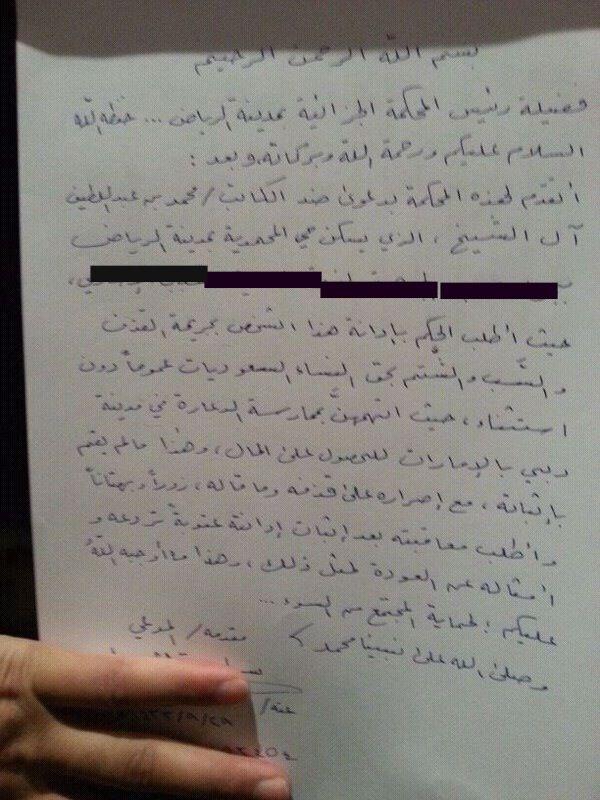 بسم الله الرحمن الرحيم
فضيلة رئيس المحكمة الجزائية بمدينة الرياض ... حفظه الله
السلام عليكم ورحمة الله وبركاته، وبعد :
أتقدم لهذه المحكمة بدعوى ضد الكاتب / محمد بن عبداللطيف
آل الشيخ ، الذي يسكن حي المحمدية بمدينة الرياض
حيث أطلب الحكم بإدانة هذا الشخص بجريمة القذف
والسَّب والشَّتم بحق النساء السعوديات عموماً دون
استثناء ، حيث اتهمهنَّ بممارسة الدعارة في مدينة
دبي بالإمارات للحصول على المال ، وهذا مالم يقم
بإثباته ، مع إصراره على قذفه وما قاله ، زوراً وبهتاناً
وأطلب معاقبته بعد إثبات إدانته عقوبةً تردعه و
أمثاله عن العودة لمثل ذلك ، وهذا ما أوجبه اللهُ
عليكم ؛ لحماية المجتمع من السوء ...
وصلى الله على نبينا محمد
مقدمه / المدعي
عنه /